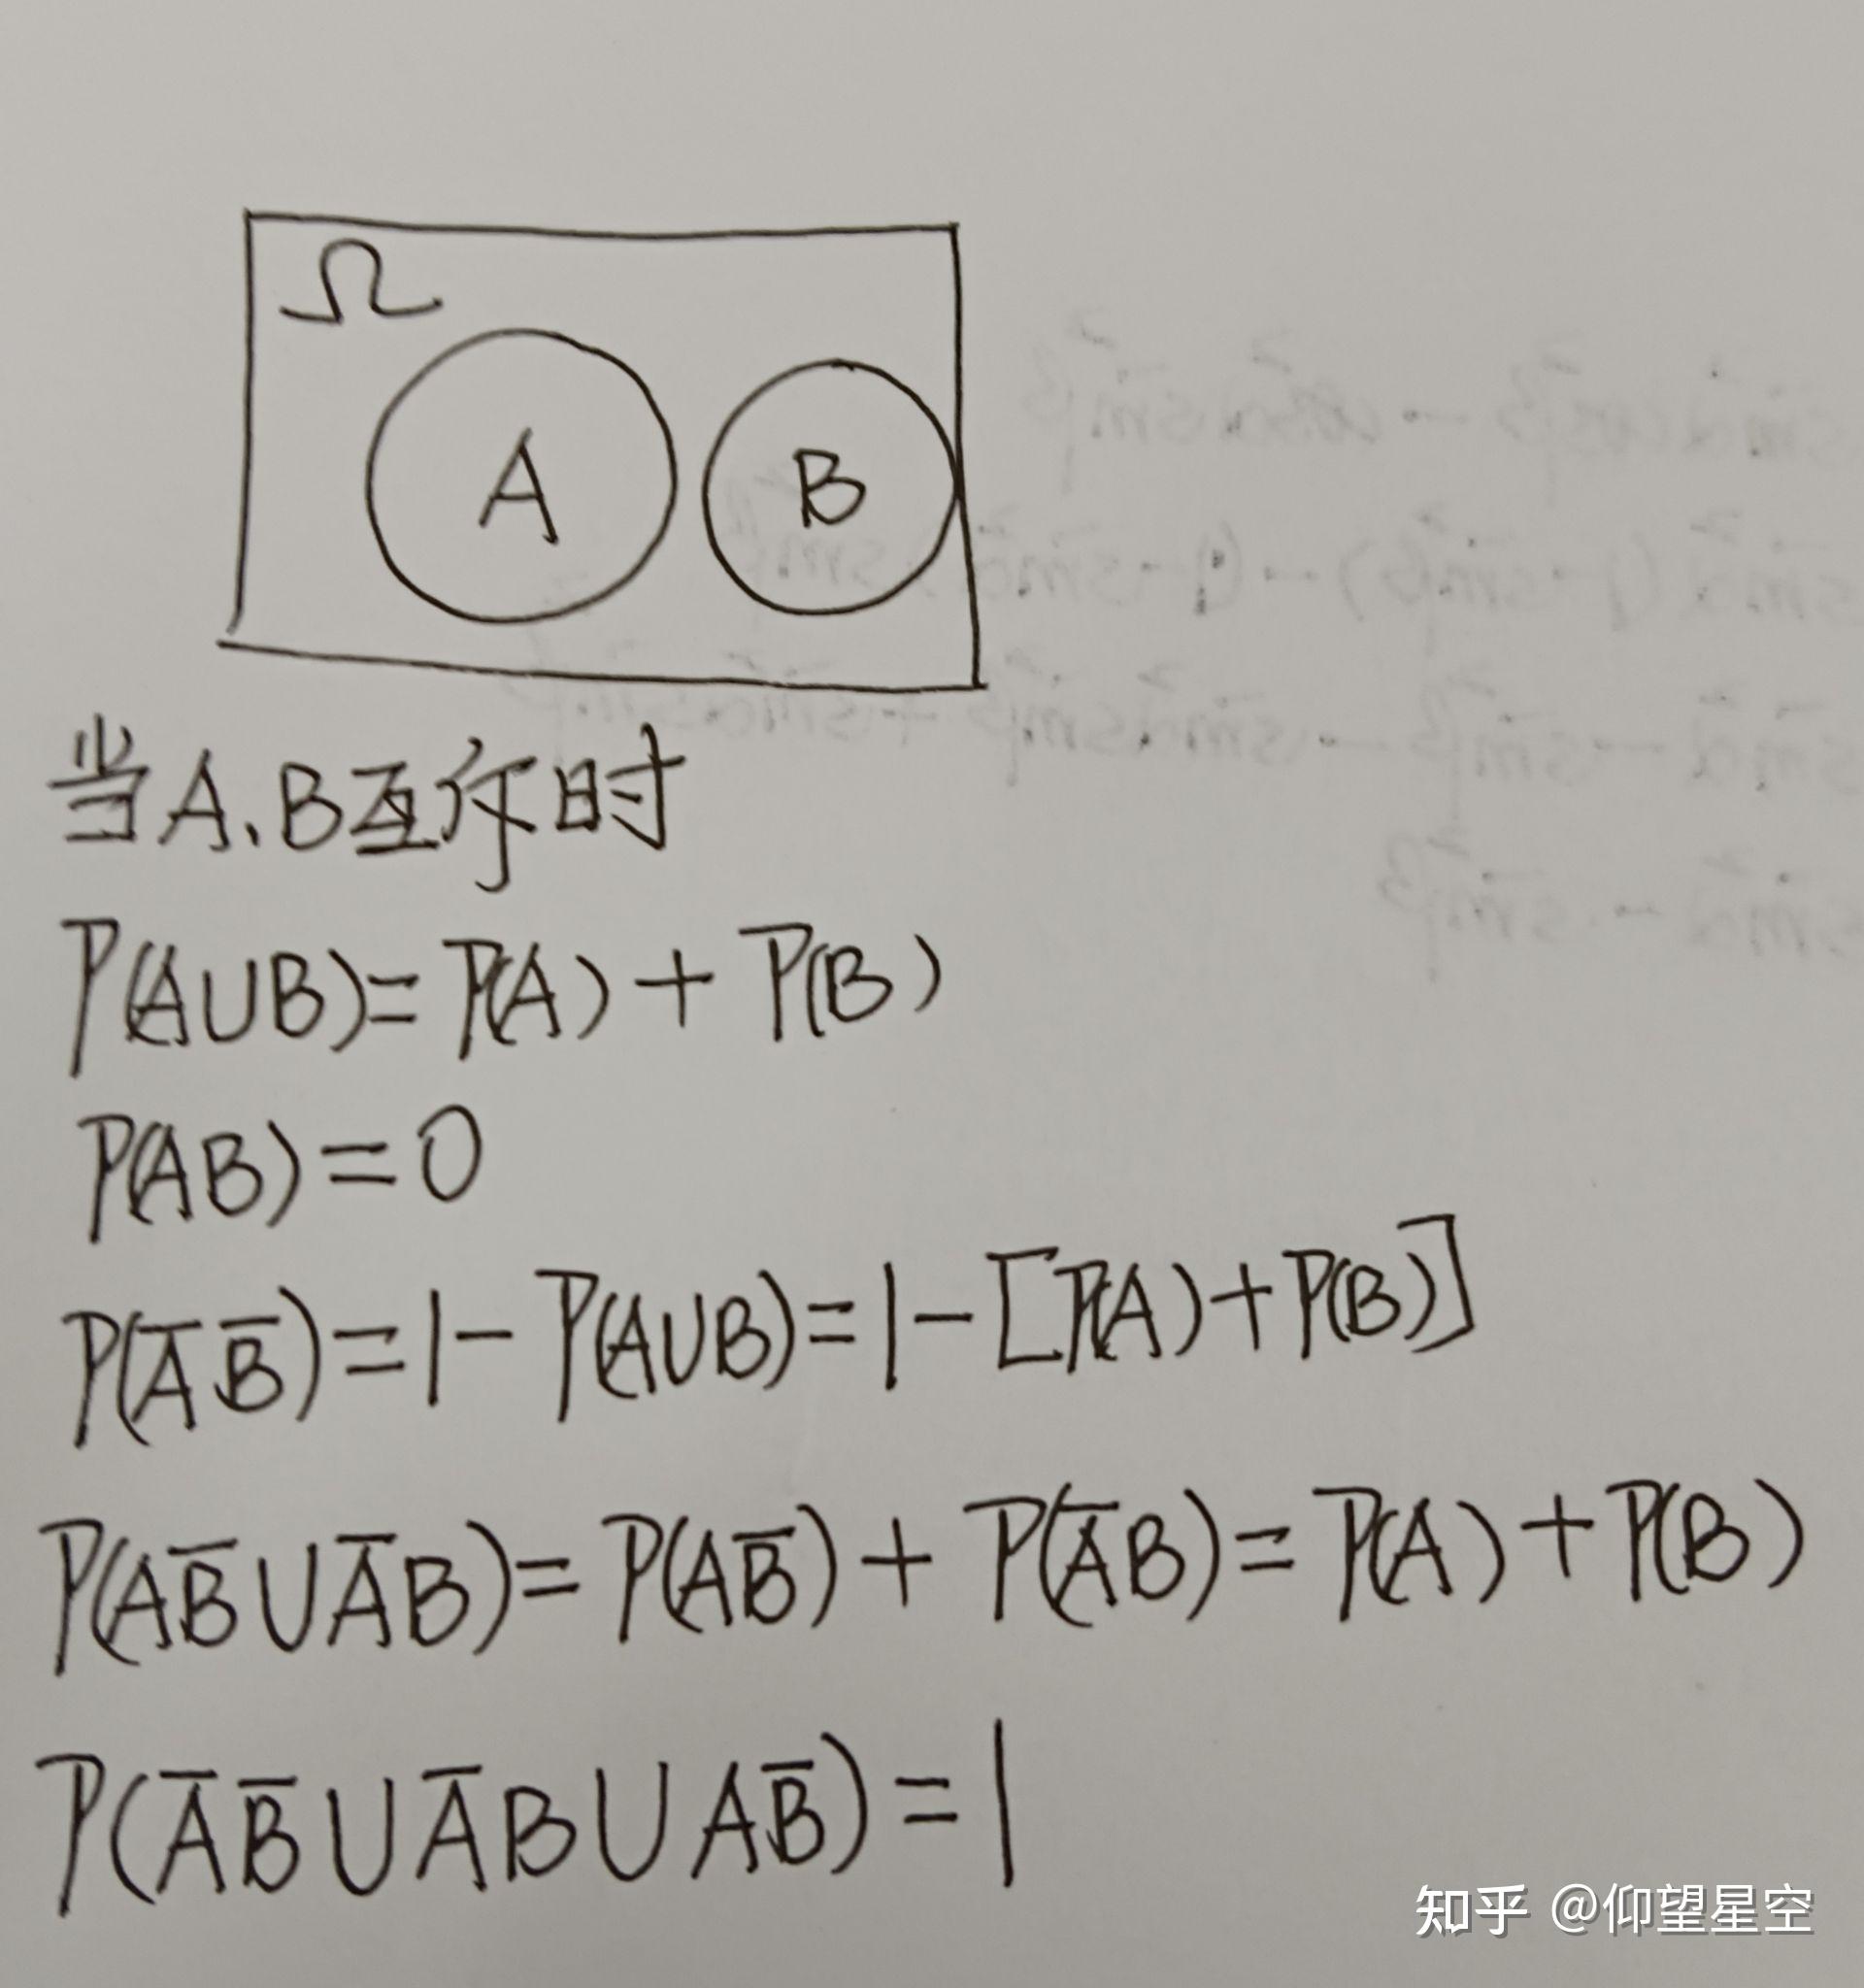 Ω
A
B
当A、B互斥时
P(A∪B)=P(A)+P(B)
P(AB)=0
P(A̅ B̅)=1-P(A∪B)=1-[P(A)+P(B)]
P(AB̅∪A̅B)=P(AB̅)+P(A̅B)=P(A)+P(B)
P(A̅B̅∪A̅B∪AB̅)=1
知乎 @仰望星空